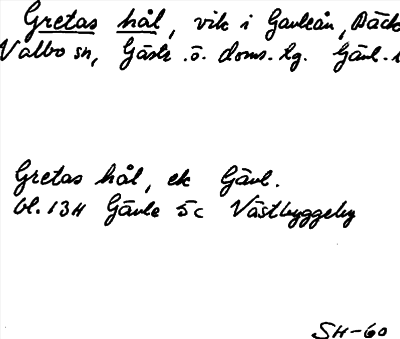 Gretas hål, vik i Gavleån, Bäck
Valbo sn, Gästr. ö. doms. tg. Gävl.
Gretas hål, ek Gävl.
bl. 13H Gävle 5c Västbyggeby
SH-60